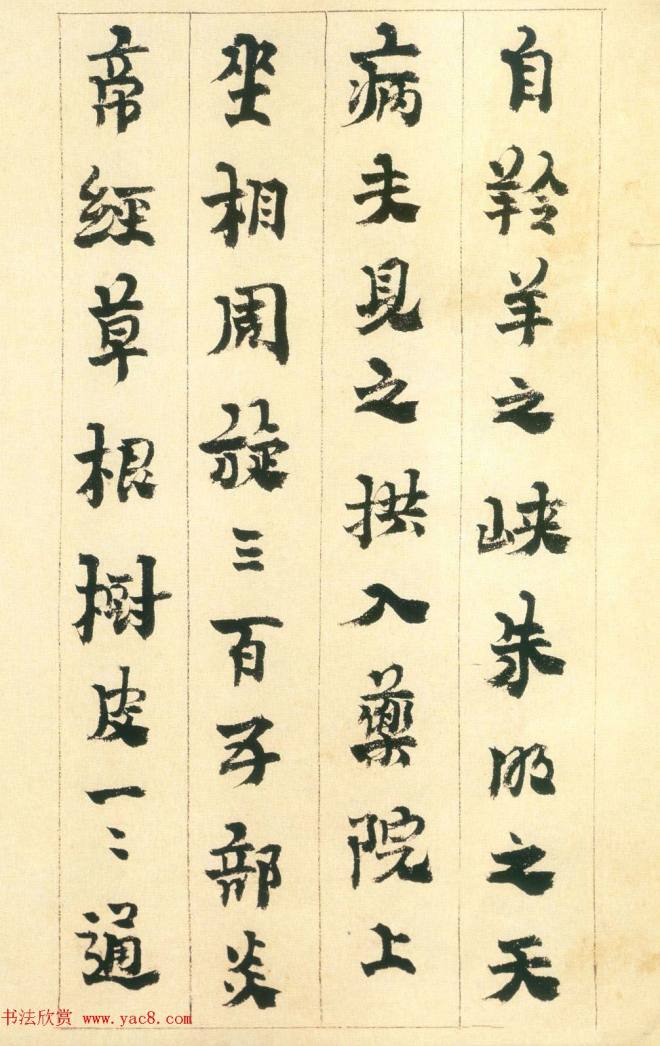 自羚羊之峡朱明之天
病夫見之拱入藥院上
坐相周旋三百子部炎
帝經草根樹皮一〻通
书法欣赏 www.yac8.com